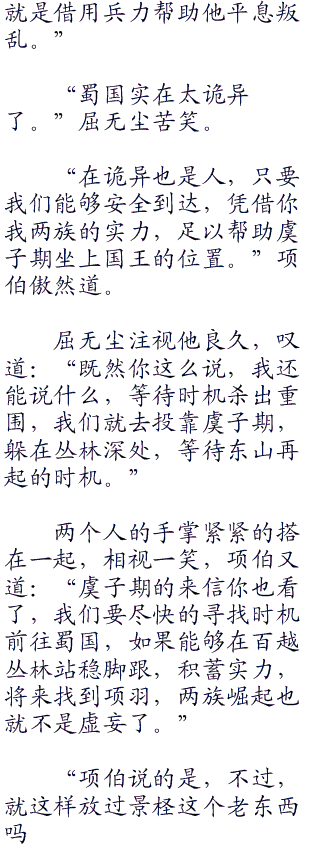 就是借用兵力帮助他平息叛
乱。”
“蜀国实在太诡异
了。”屈无尘苦笑。
“在诡异也是人，只要
我们能够安全到达，凭借你
我两族的实力，足以帮助虞
子期坐上国王的位置。”项
伯傲然道。
屈无尘注视他良久，叹
道：“既然你这么说，我还
能说什么，等待时机杀出重
围，我们就去投靠虞子期，
躲在丛林深处，等待东山再
起的时机。”
两个人的手掌紧紧的搭
在一起，相视一笑，项伯又
道：“虞子期的来信你也看
了，我们要尽快的寻找时机
前往蜀国，如果能够在百越
丛林站稳脚跟，积蓄实力，
将来找到项羽，两族崛起也
就不是虚妄了。”
“项伯说的是，不过，
就这样放过景柽这个老东西
吗